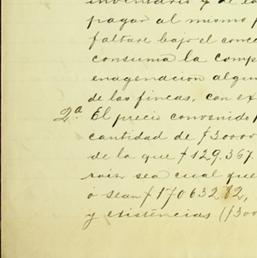 inventario y de la
pagar al mismo p
faltase bajo el conc
consuma la comp
enagenacion algun
de las fincas, con ex
2ª El precio convenido p
cantidad de $3000
de la que $129.367.
sea cual que
ó sean $170632 12,
y existencias ($300